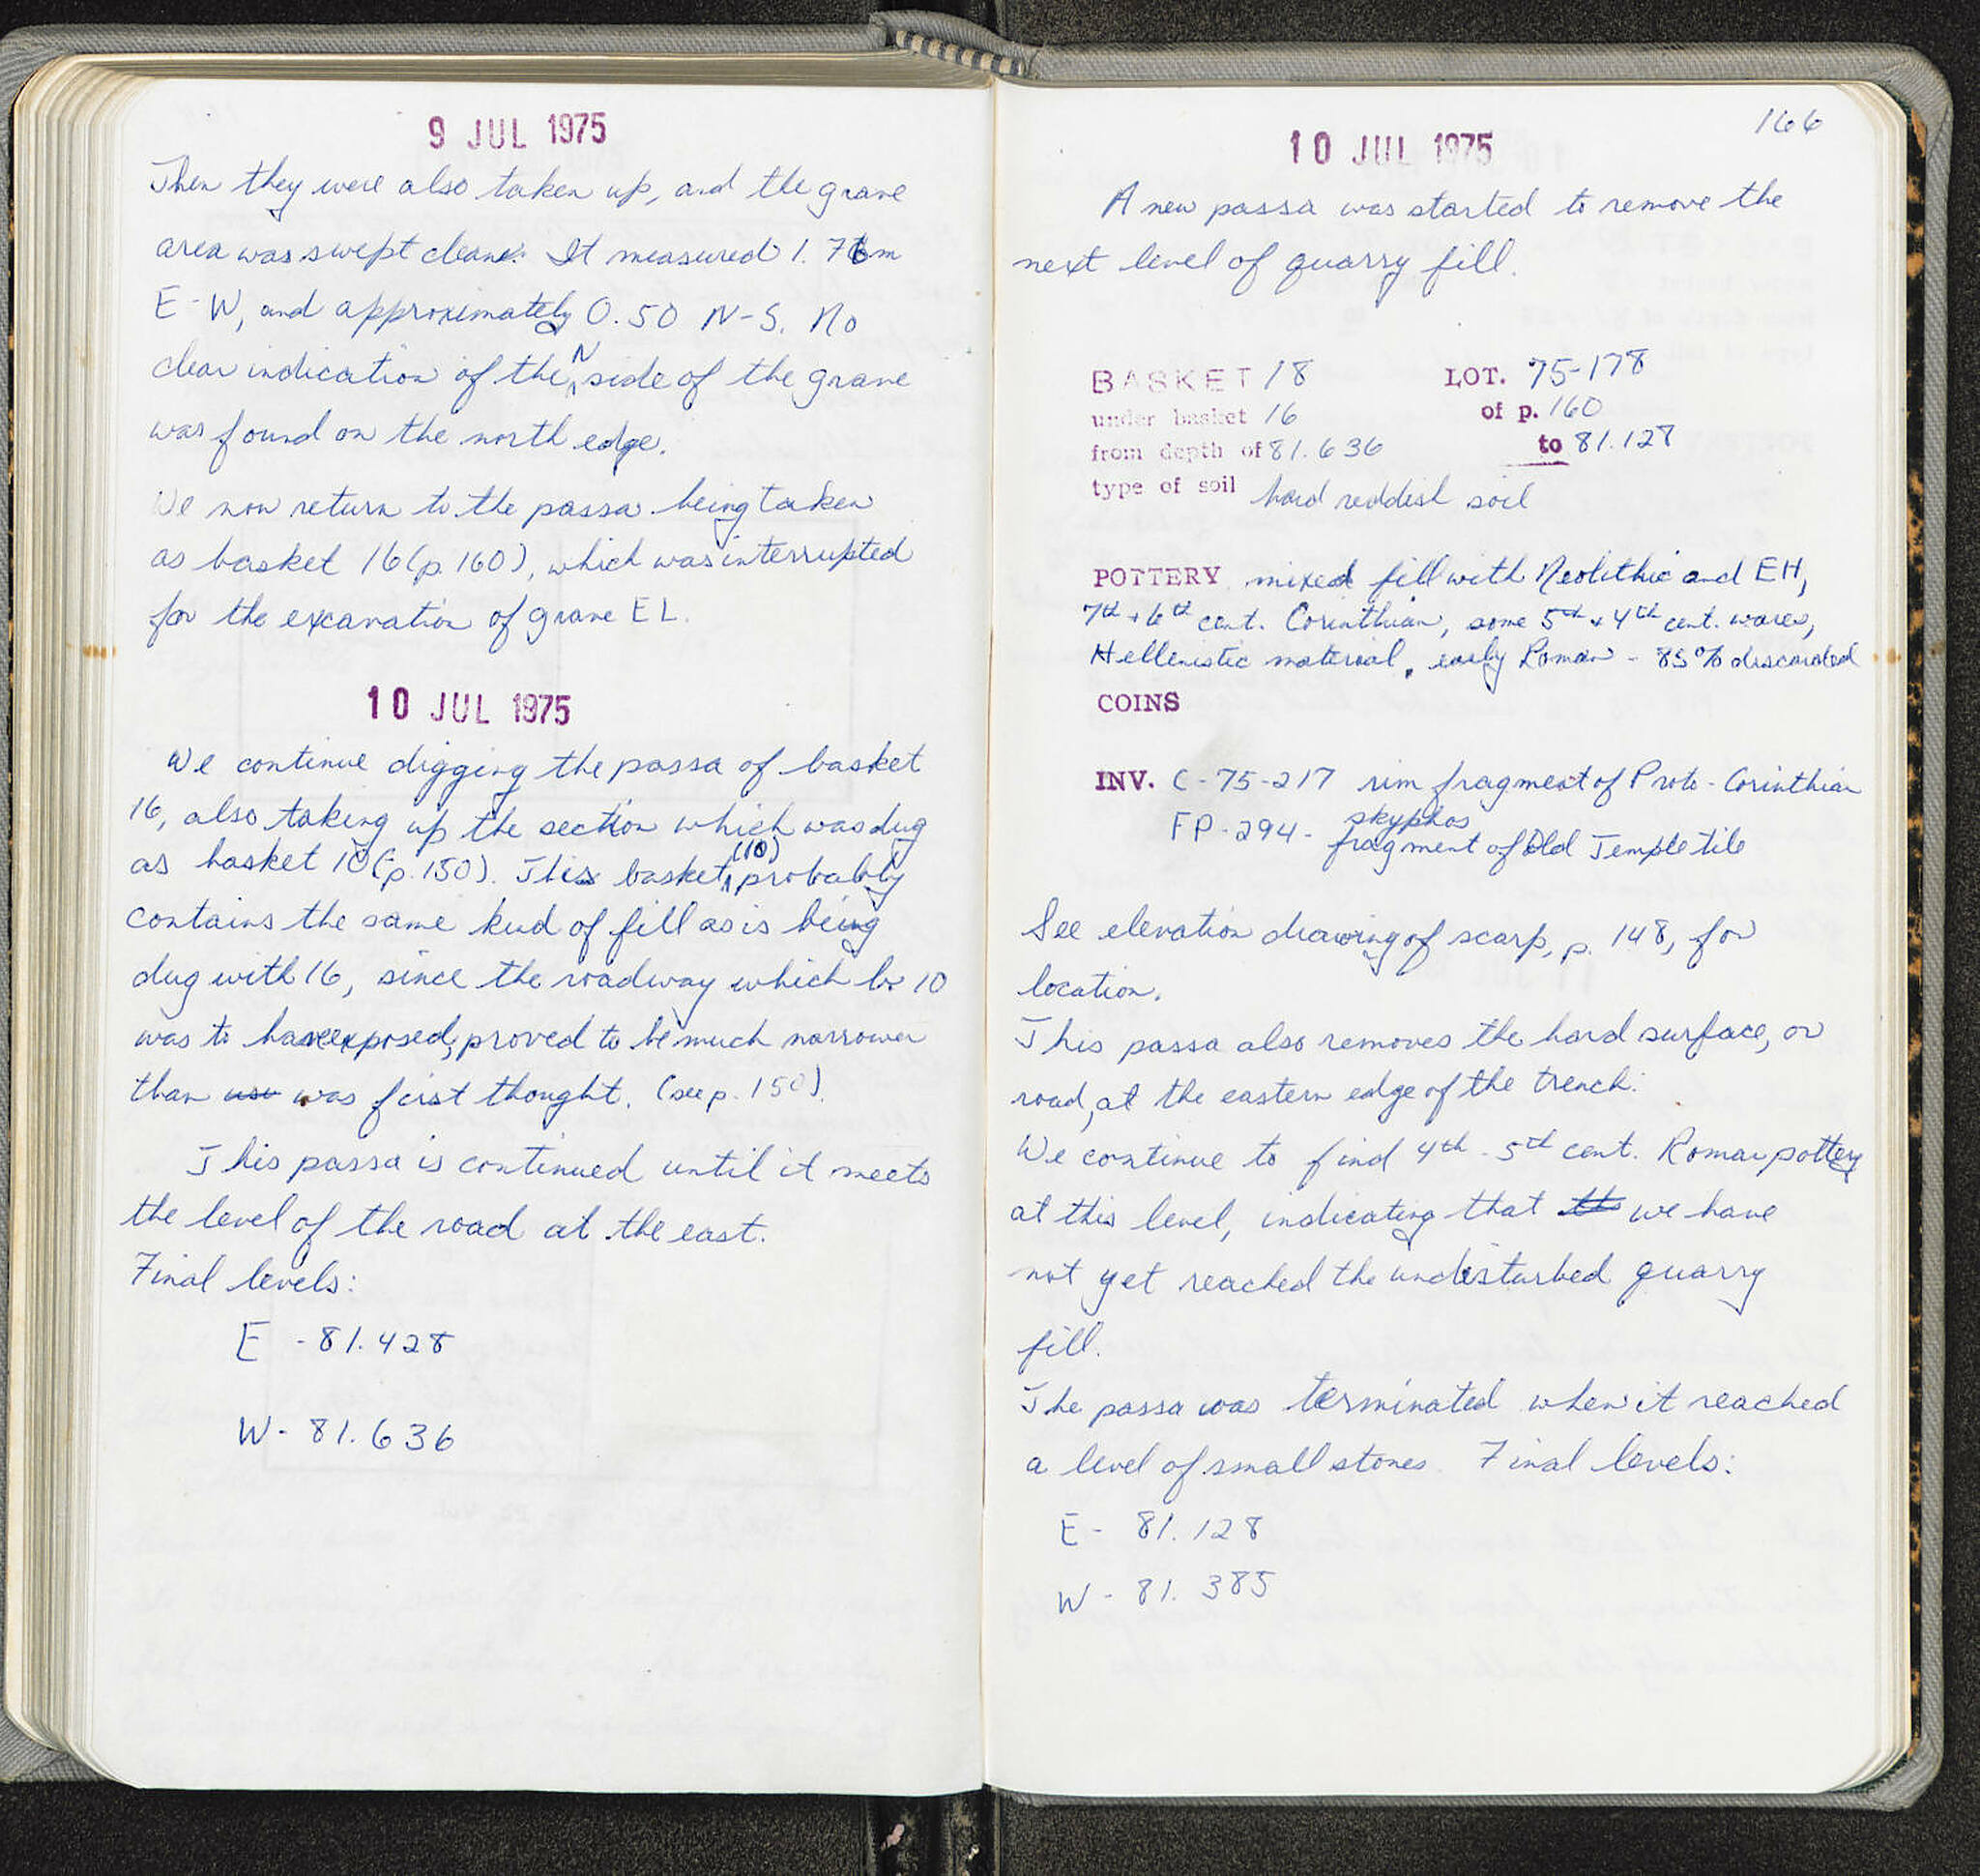 9 JUL 1975
Then they were also taken up, and the grave
area was swept clean. It measured 1.76m
E-W, and approximately 0.50 N-S. No
clear indication of the N side of the grave
was found on the north edge.
We now return to the passa being taken
as basket 16 (p. 160), which was interrupted
for the excavation of grave EL.
10 JUL 1975
We continue digging the passa of basket
16, also taking up the section which was dug
as basket 10 (p. 150). This basket (10) probably
contains the same kind of fill as is being
dug with 16, since the roadway which b. 10
was to have exposed, proved to be much narrower
than was first thought. (see p. 150).
This passa is continued until it meets
the level of the road at the east.
Final levels:
E - 81.428
W - 81.636
166
10 JUL 1975
A new passa was started to remove the
next level of quarry fill.
BASKET 18 LOT. 75-178
under basket 16 of p. 160
from depth of 81.636 to 81.128
type of soil hard reddish soil
POTTERY mixed fill with Neolithic and EH,
7th + 6th cent. Corinthian, some 5th + 4th cent. wares,
Hellenistic material, early Roman - 85% discarded
COINS
INV. C-75-217 rim fragment of Proto-Corinthian
skyphos
FP-294- fragment of Old Temple tile
See elevation drawing of scarp, p. 148, for
location.
This passa also removes the hard surface, or
road, at the eastern edge of the trench.
We continue to find 4th - 5th cent. Roman pottery
at this level, indicating that we have
not yet reached the undisturbed quarry
fill.
The passa was terminated when it reached
a level of small stones. Final levels:
E - 81.128
W - 81.385